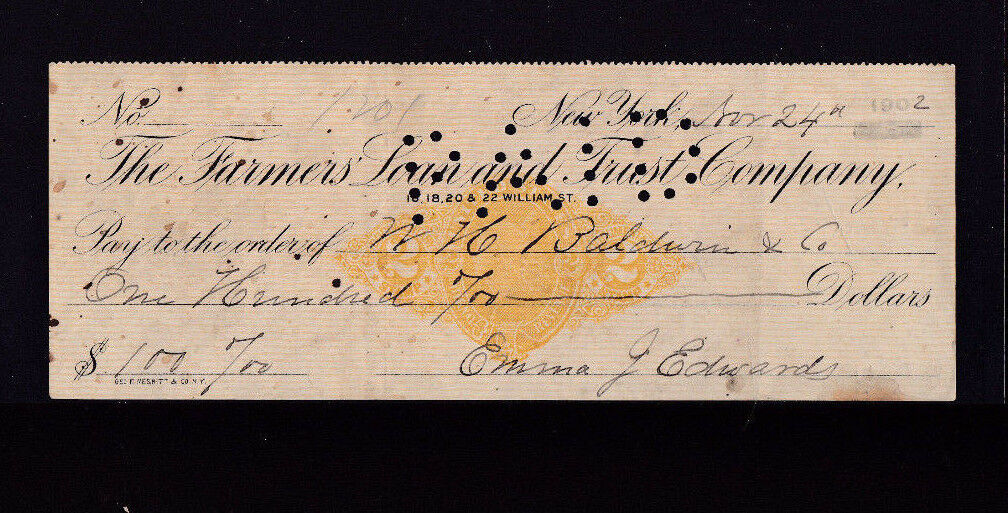 No 1201 New York, Nov 24th 1902
The Farmers' Loan and Trust Company,
16, 18, 20 & 22 WILLIAM ST.
Pay to the order of W. H. Baldwin & Co
One Hundred /00 Dollars
$ 100 /00 Emma J Edwards
GEO. F. NESBITT & CO. N.Y.